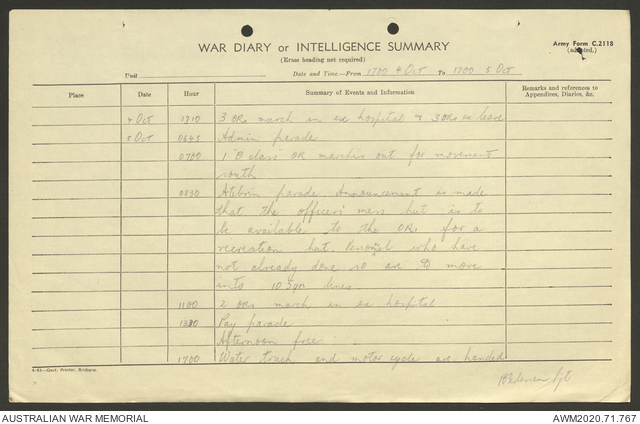 WAR DIARY or INTELLIGENCE SUMMARY
Army Form C.2118
(adapted.)
(Erase heading not required)
Unit
Date and Time.—From 1700 4 Oct To 1700 5 Oct
Place Date Hour Summary of Events and Information Remarks and references to Appendices, Diaries, &c.
4 Oct 1710 3 ORs march in ex hospital & 3 ORs ex leave
5 Oct 0645 Admin parade
0700 1 "B class" OR marches out for movement
south
0830 Atebrin parade Announcement is made
that the officers' mess hut is to
be available to the ORs for a
recreation hut. Personnel who have
not already done so are to move
into 10 Sqn lines
1100 2 ORs march in ex hospital
1330 Pay parade
Afternoon free
1700 Water truck and motor cycle are handed
4-43—Govt. Printer, Brisbane.
AUSTRALIAN WAR MEMORIAL
AWM2020.71.767